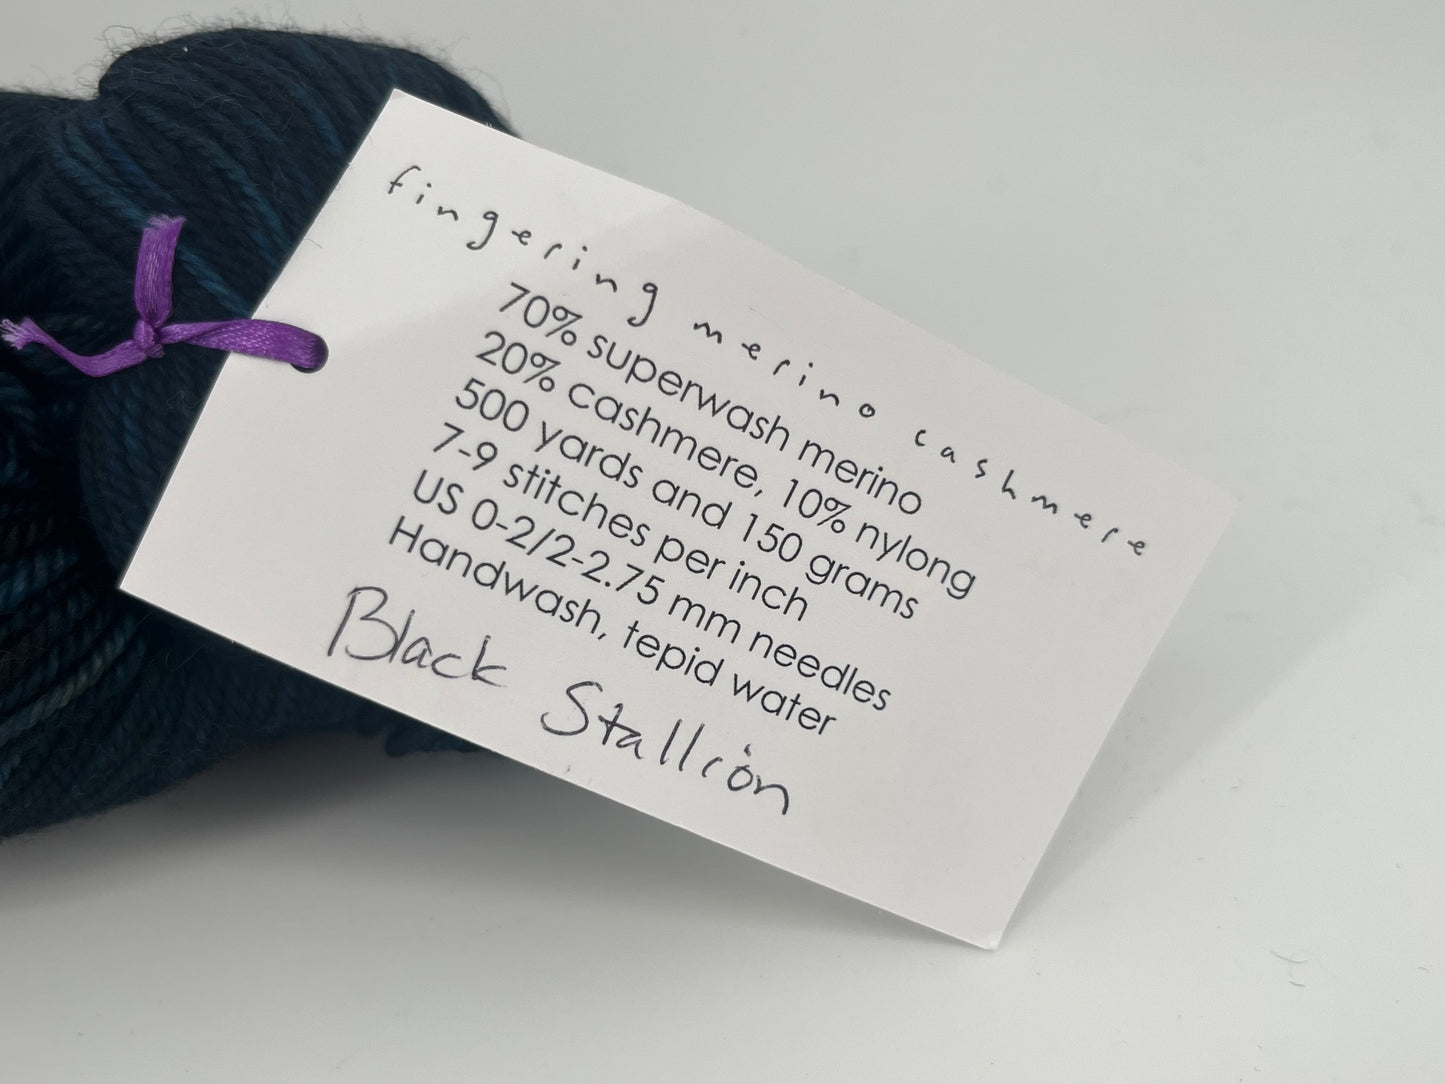 fingering merino cashmere
70% superwash merino
20% cashmere, 10% nylong
500 yards and 150 grams
7-9 stitches per inch
US 0-2/2-2.75 mm needles
Handwash, tepid water
Black Stallion